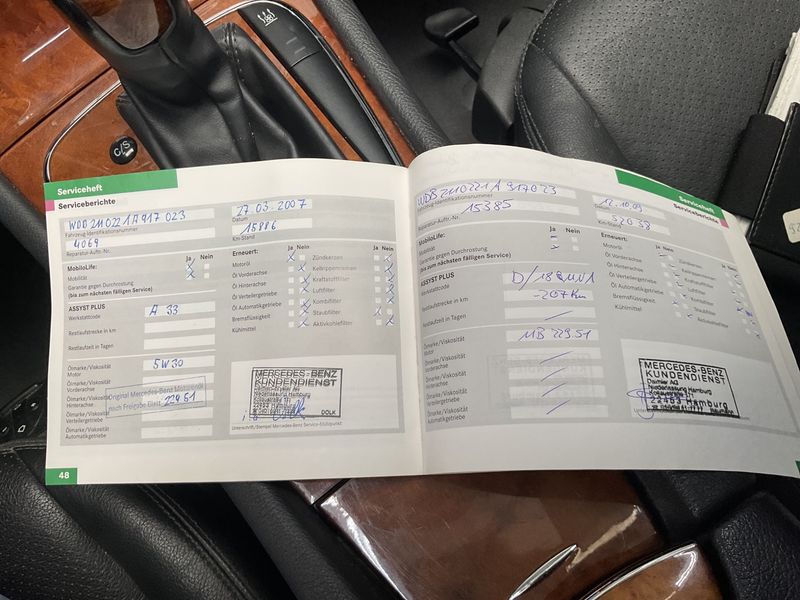 C/S
Serviceheft
Serviceberichte
WDB 211022 1A 917 023
Fahrzeug-Identifikationsnummer
4069
Reparatur-Auftr.-Nr.
27.03.2007
Datum
15886
Km-Stand
MobiloLife: Ja Nein
Mobilität
Garantie gegen Durchrostung
(bis zum nächsten fälligen Service)
ASSYST PLUS
Werkstattcode A 33
Restlaufstrecke in km
Restlaufzeit in Tagen
Ölmarke/Viskosität
Motor 5W30
Ölmarke/Viskosität
Vorderachse
Original Mercedes-Benz Motorenöl
nach Freigabe Blatt 229.51
Ölmarke/Viskosität
Hinterachse
Ölmarke/Viskosität
Verteilergetriebe
Ölmarke/Viskosität
Automatikgetriebe
Erneuert: Ja Nein Ja Nein
Motoröl Zündkerzen
Öl Vorderachse Keilrippenriemen
Öl Hinterachse Kraftstofffilter
Öl Verteilergetriebe Luftfilter
Öl Automatikgetriebe Kombifilter
Bremsflüssigkeit Staubfilter
Kühlmittel Aktivkohlefilter
MERCEDES-BENZ
KUNDENDIENST
Niederlassung Hamburg
Kollaustraße
22453 Hamburg
DOLK
Unterschrift/Stempel Mercedes-Benz Service-Stützpunkt
48
Serviceheft
Serviceberichte
WDB 211022 1 A 917023
Fahrzeug-Identifikationsnummer
15385
Reparatur-Auftr.-Nr.
12.10.09
Datum
52038
Km-Stand
MobiloLife: Ja Nein
Mobilität
Garantie gegen Durchrostung
(bis zum nächsten fälligen Service)
ASSYST PLUS
Werkstattcode
Restlaufstrecke in km -207 km
Restlaufzeit in Tagen
Ölmarke/Viskosität
Motor MB 229.51
Ölmarke/Viskosität
Vorderachse
Ölmarke/Viskosität
Hinterachse
Ölmarke/Viskosität
Verteilergetriebe
Ölmarke/Viskosität
Automatikgetriebe
Erneuert: Ja Nein Ja Nein
Motoröl Zündkerzen
Öl Vorderachse Keilrippenriemen
Öl Hinterachse Kraftstofffilter
Öl Verteilergetriebe Luftfilter
Öl Automatikgetriebe Kombifilter
Bremsflüssigkeit Staubfilter
Kühlmittel Aktivkohlefilter
MERCEDES-BENZ
KUNDENDIENST
Daimler AG
Niederlassung Hamburg
Kollaustraße
22453 Hamburg